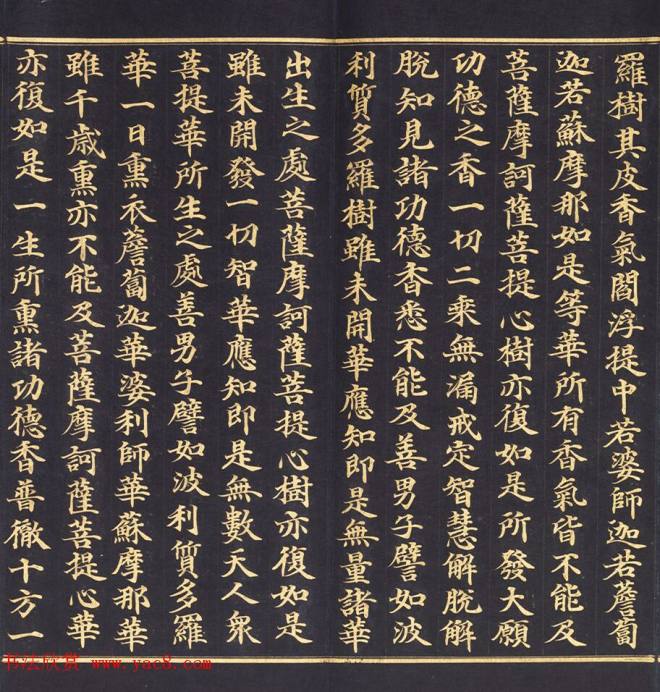 羅樹其皮香氣閻浮提中若婆師迦若薝蔔
迦若蘇摩那如是等華所有香氣皆不能及
菩薩摩訶薩菩提心樹亦復如是所發大願
功德之香一切二乘無漏戒定智慧解脫解
脫知見諸功德香悉不能及善男子譬如波
利質多羅樹雖未開華應知即是無量諸華
出生之處菩薩摩訶薩菩提心樹亦復如是
雖未開發一切智華應知即是無數天人眾
菩提華所生之處善男子譬如波利質多羅
華一日熏衣薝蔔迦華婆利師華蘇摩那華
雖千歲熏亦不能及菩薩摩訶薩菩提心華
亦復如是一生所熏諸功德香普徹十方一
书法欣赏 www.yac8.com